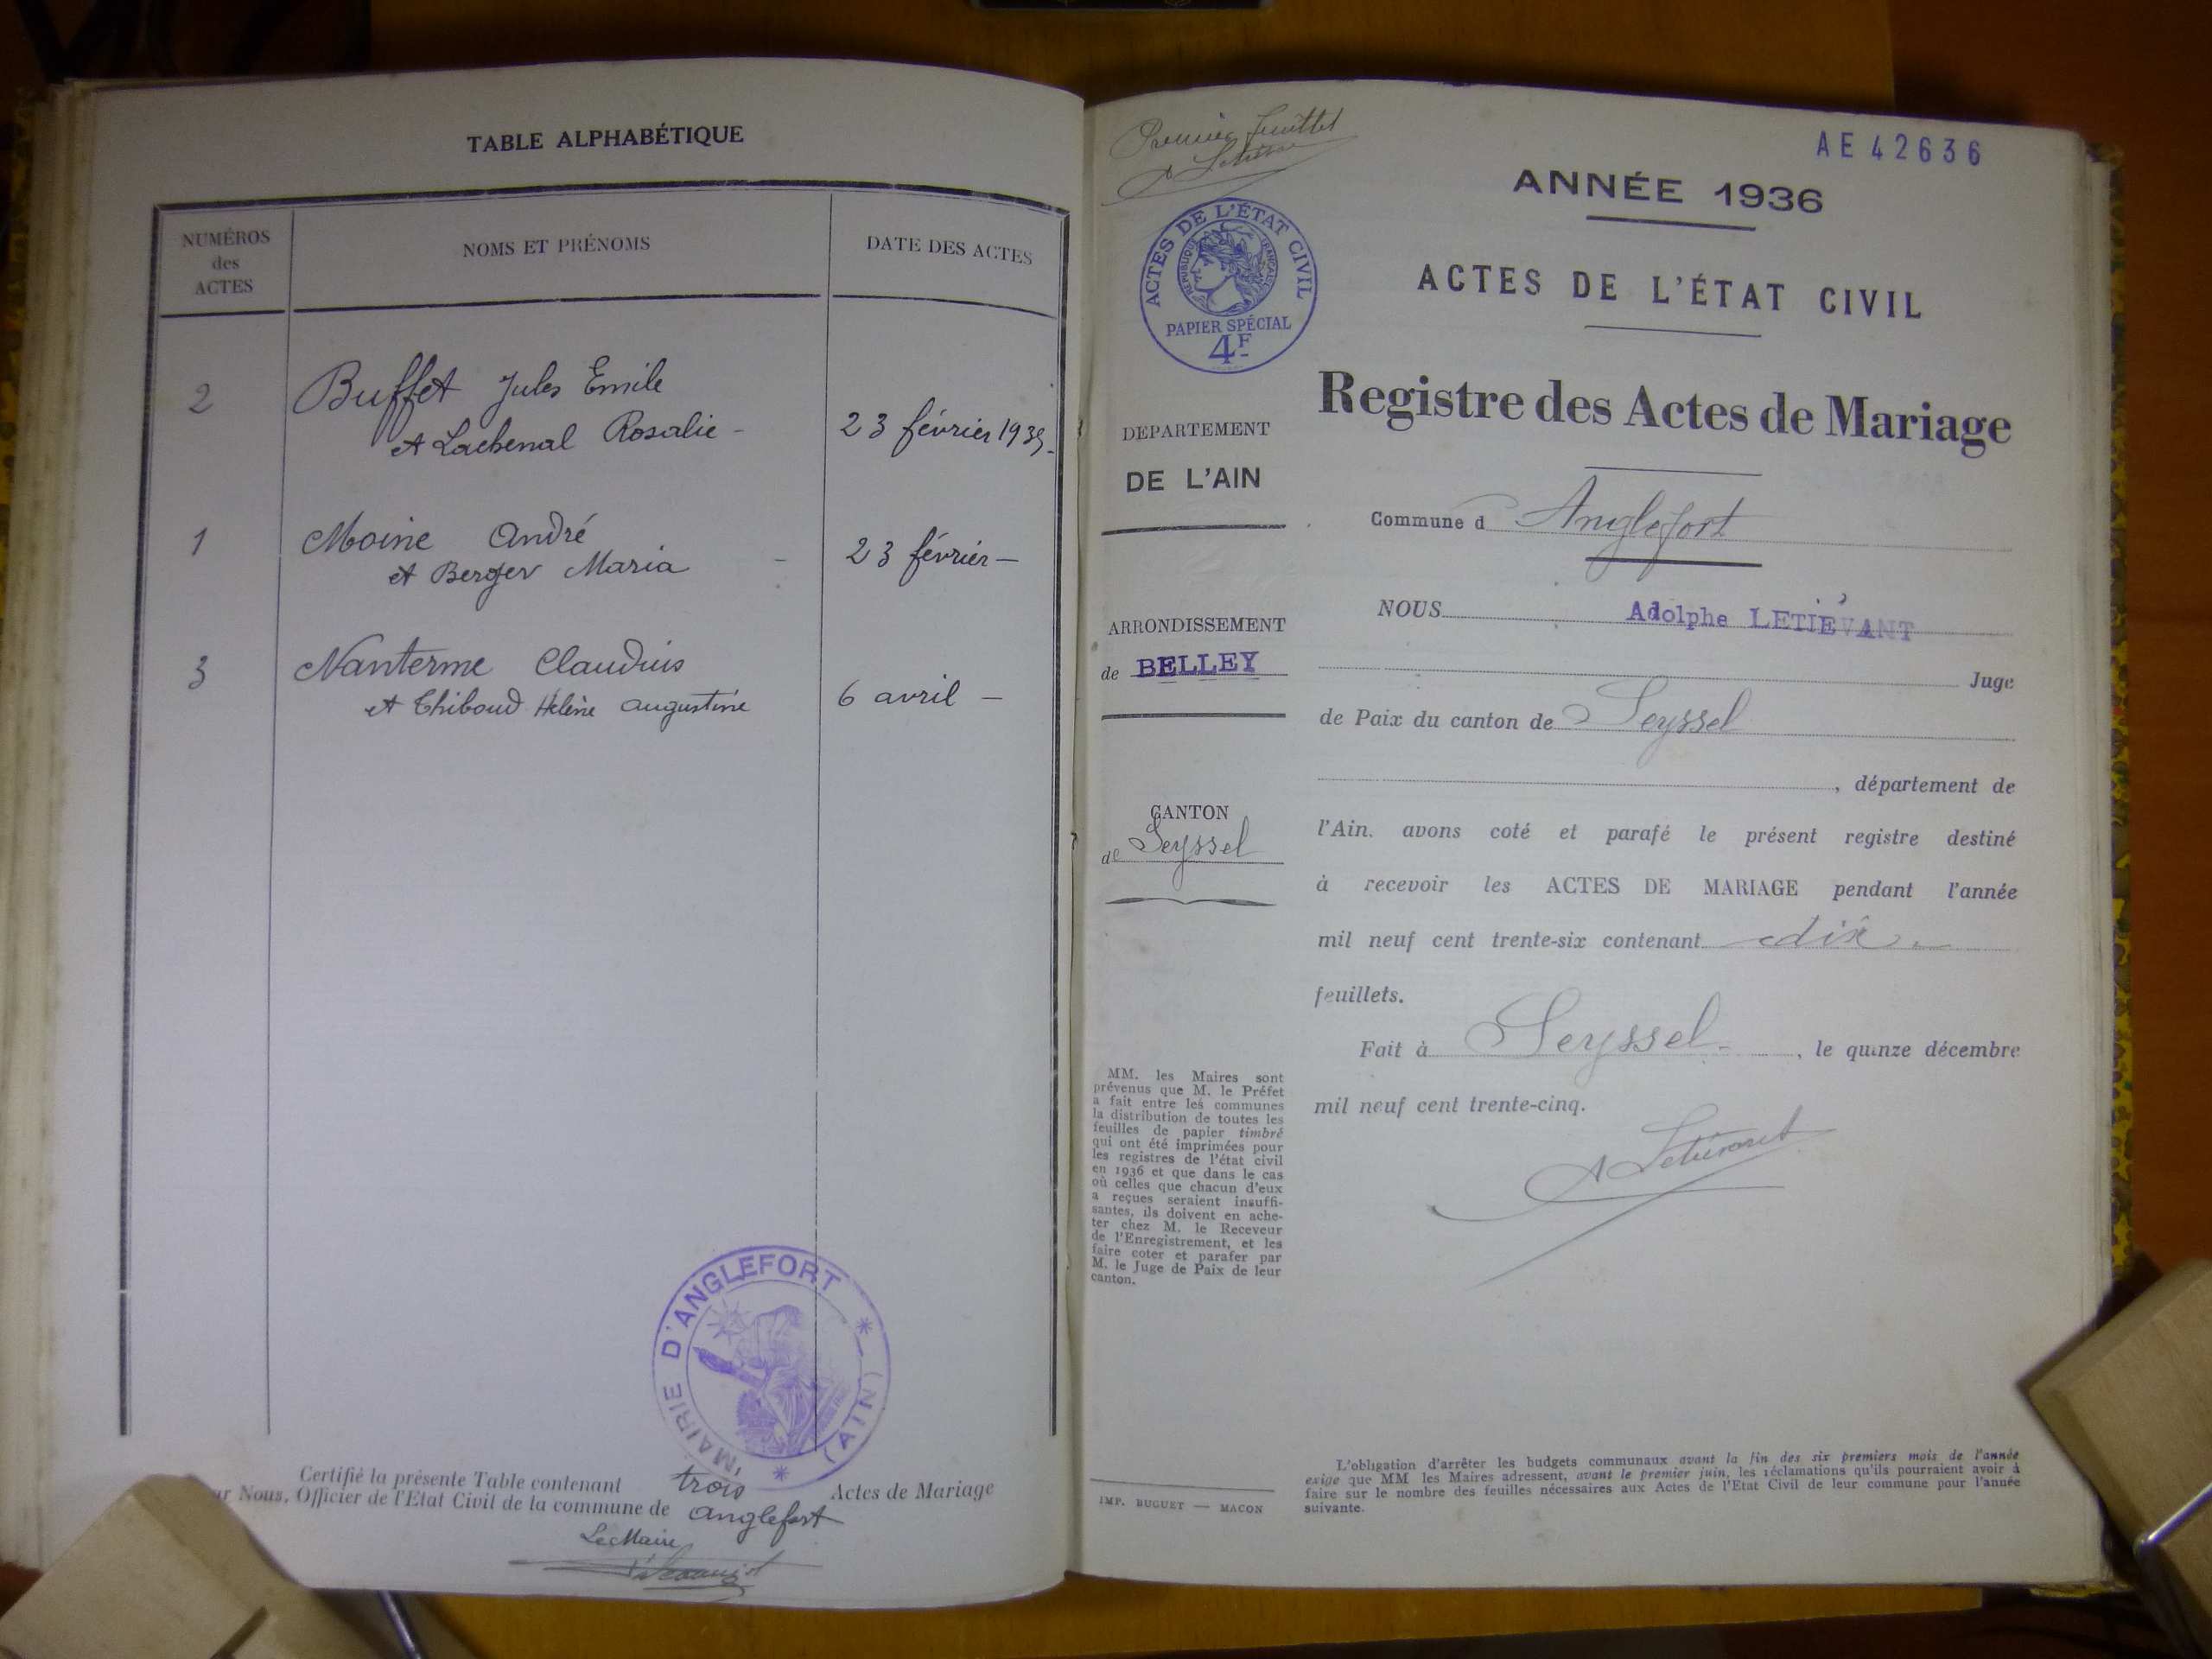 TABLE ALPHABÉTIQUE
NUMÉROS
des
ACTES
NOMS ET PRÉNOMS
DATE DES ACTES
2 Buffet Jules Emile
et Lachenal Rosalie - 23 février 1935 -
1 Moine André
et Berger Maria - 23 février -
3 Nanterme Claudius
et Thiboud Hélène Augustine 6 avril -
MAIRIE D'ANGLEFORT
(AIN)
Certifié la présente Table contenant trois Actes de Mariage
Nous, Officier de l'Etat Civil de la commune de Anglefort
Le Maire
Premier feuillet
AE 42636
ANNÉE 1936
ACTES DE L'ÉTAT CIVIL
RÉPUBLIQUE FRANÇAISE
PAPIER SPÉCIAL
4F
ACTES DE L'ÉTAT CIVIL
Registre des Actes de Mariage
DEPARTEMENT
DE L'AIN
Commune d Anglefort
ARRONDISSEMENT
de BELLEY
NOUS Adolphe LETIÉVANT
Juge
de Paix du canton de Seyssel
, département de
CANTON
de Seyssel
l'Ain. avons coté et parafé le présent registre destiné
à recevoir les ACTES DE MARIAGE pendant l'année
mil neuf cent trente-six contenant dix
feuillets.
Fait à Seyssel , le quinze décembre
mil neuf cent trente-cinq.
A Letiévant
MM. les Maires sont
prévenus que M. le Préfet
a fait entre les communes
la distribution de toutes les
feuilles de papier timbré
qui ont été imprimées pour
les registres de l'état civil
en 1936 et que dans le cas
où celles que chacun d'eux
a reçues seraient insuffi-
santes, ils doivent en ache-
ter chez M. le Receveur
de l'Enregistrement, et les
faire coter et parafer par
M. le Juge de Paix de leur
canton.
IMP. BUGUET — MACON
L'obligation d'arrêter les budgets communaux avant la fin des six premiers mois de l'année
exige que MM les Maires adressent, avant le premier juin, les réclamations qu'ils pourraient avoir à
faire sur le nombre des feuilles nécessaires aux Actes de l'Etat Civil de leur commune pour l'année
suivante.